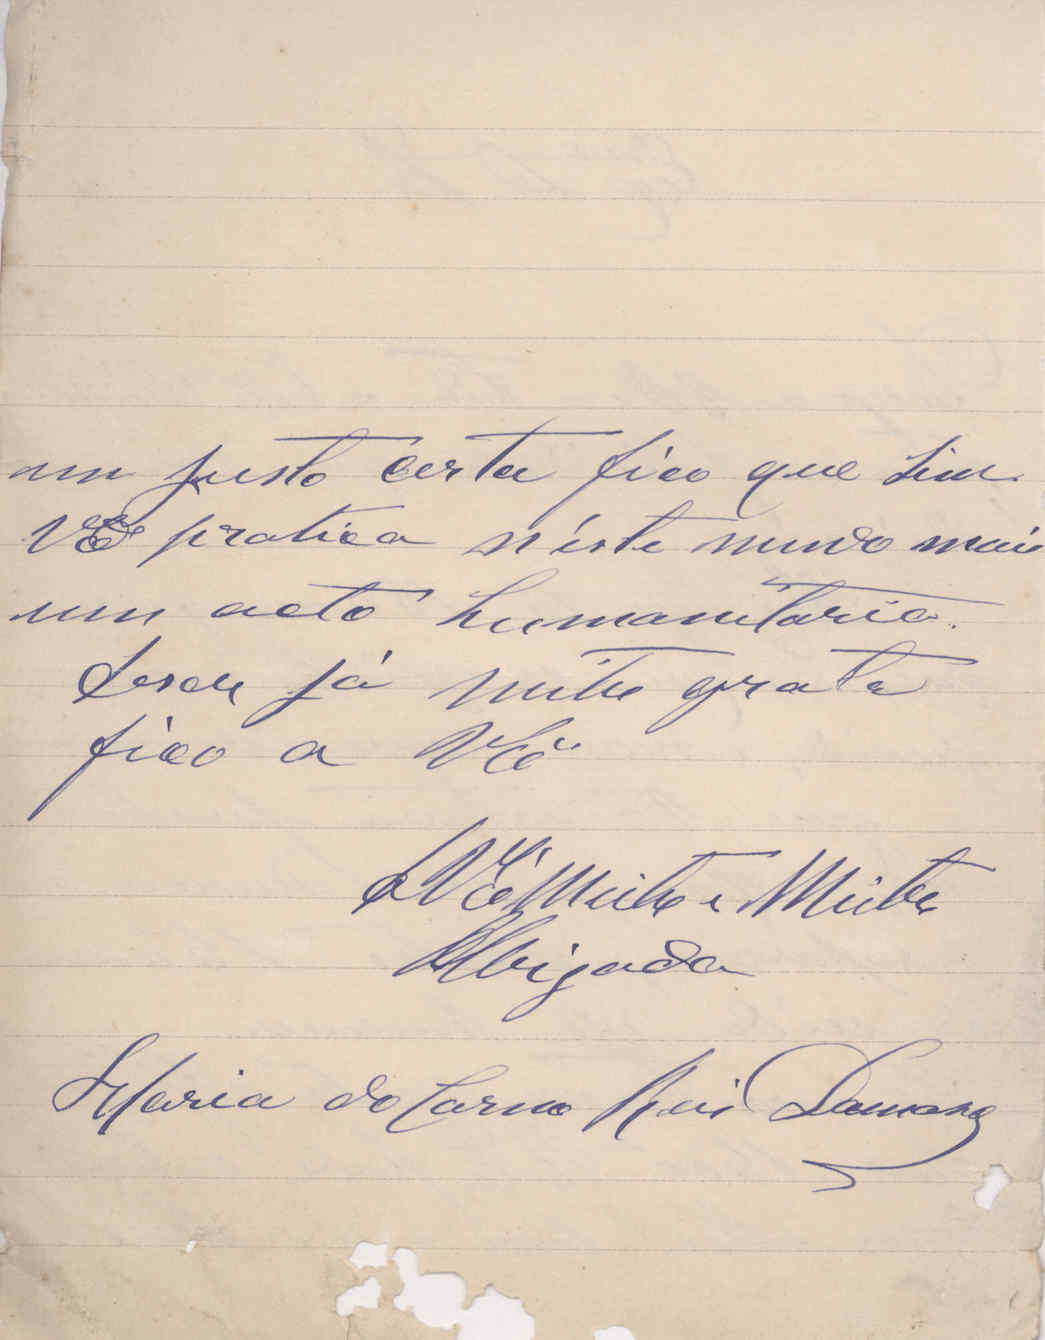 um justo certa fico que sim
VEª pratica n'éste mundo mais
um acto humanitario.
Desde já muito grata
fico a VEª
D VEª Muito e Muito
Obrigada
Maria do Carmo Reis Damas